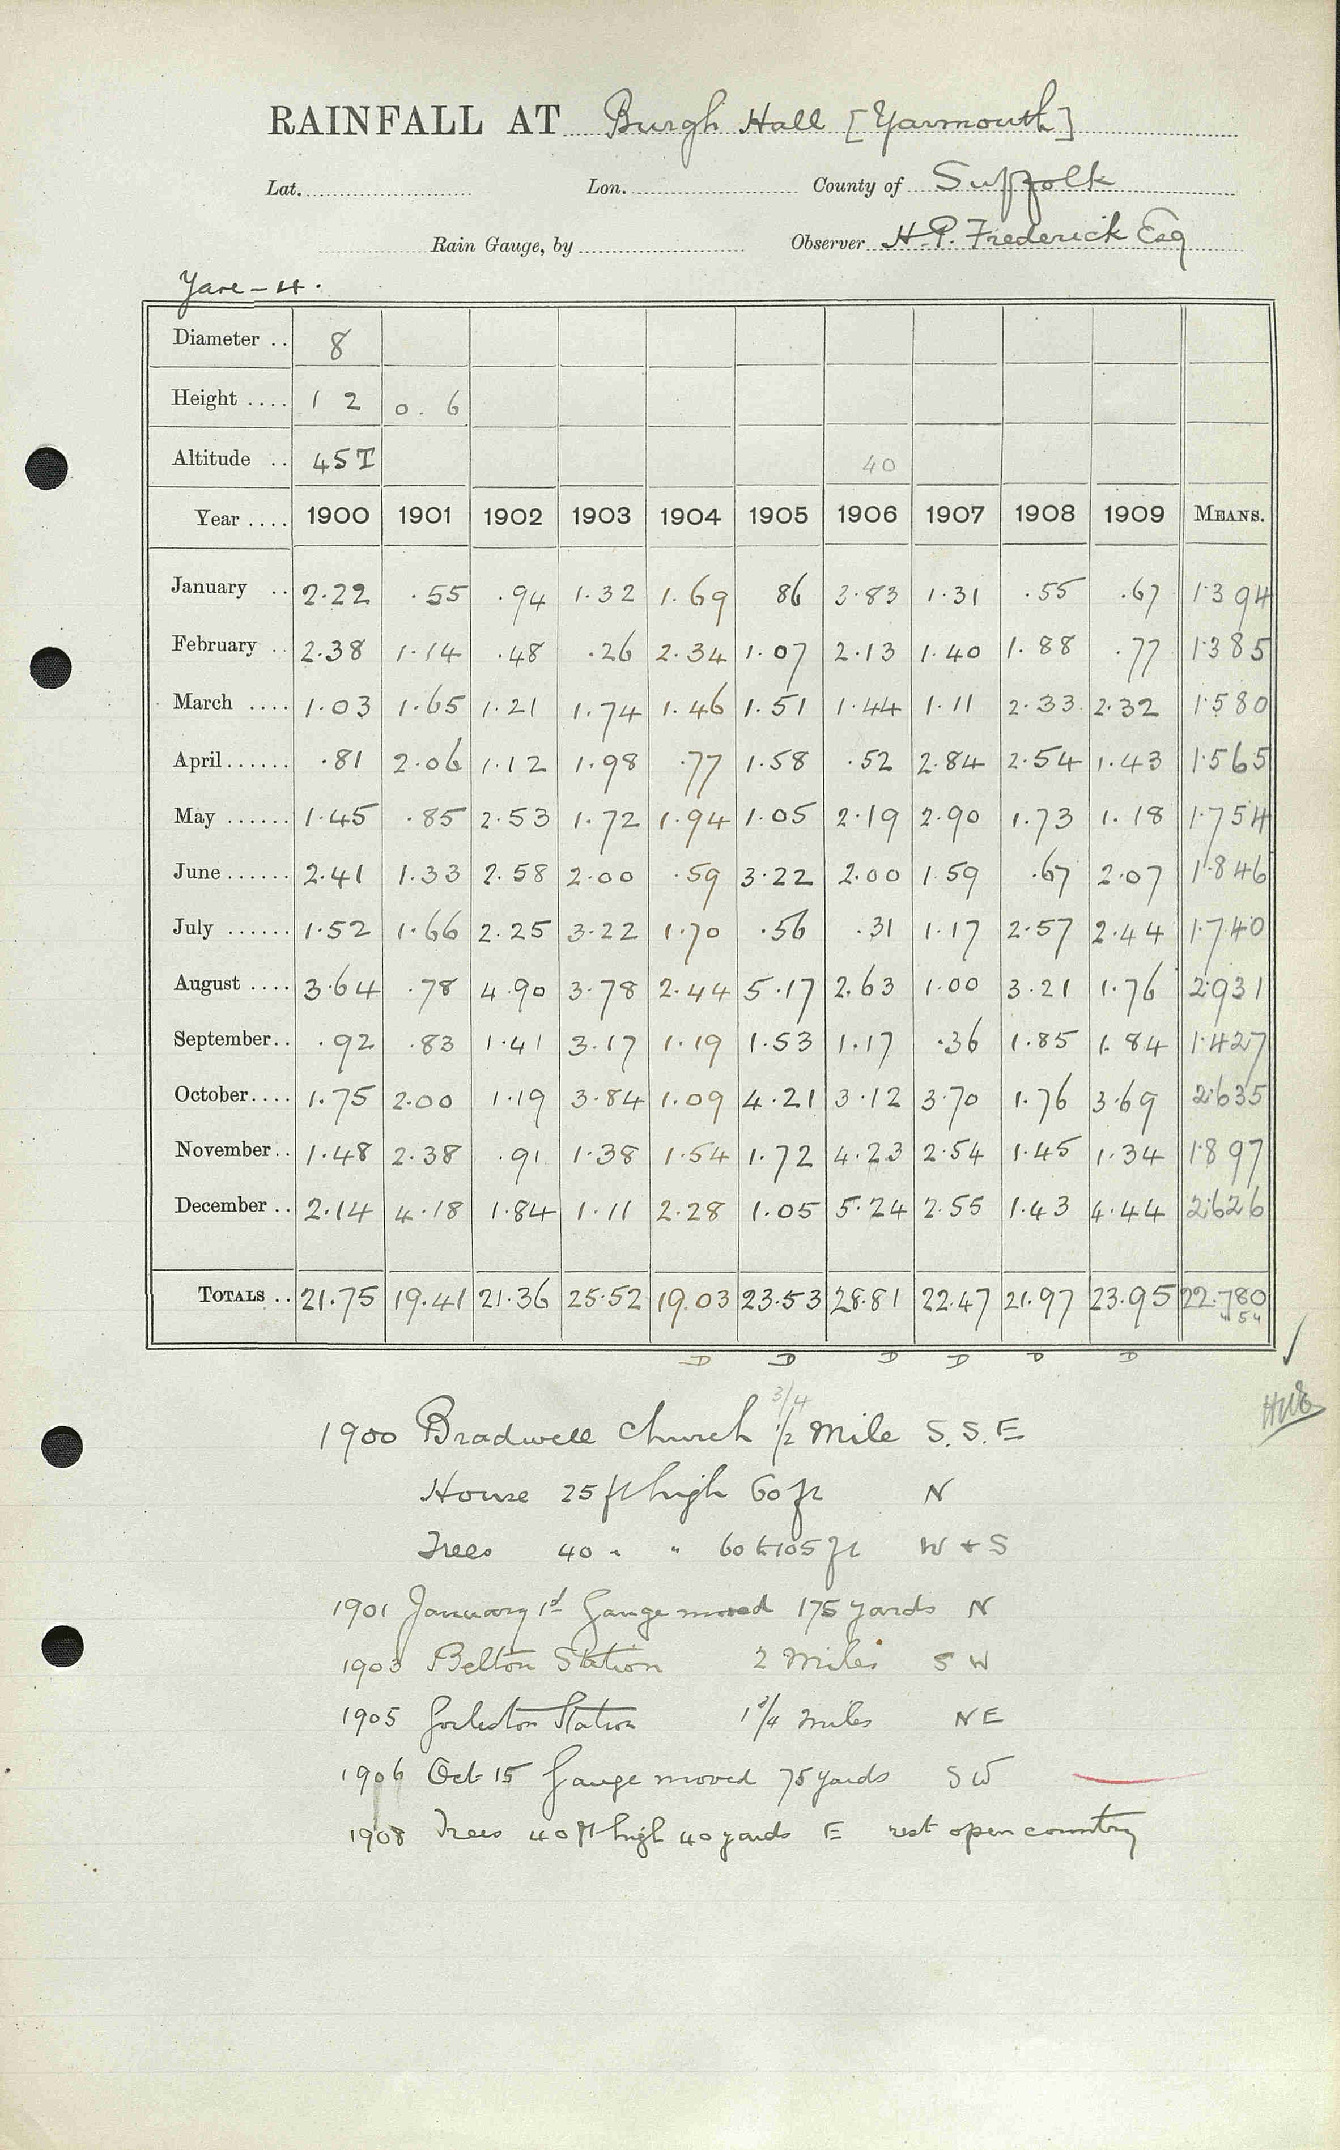 RAINFALL AT Burgh Hall [Yarmouth]
Lat. Lon. County of Suffolk
Rain Gauge, by Observer H.P. Frederick Esq
Yare - 4.
Diameter .. 8
Height .... 1 2 0. 6
Altitude .. 45T 40
Year .... 1900 1901 1902 1903 1904 1905 1906 1907 1908 1909 MEANS.
January .. 2.22 .55 .94 1.32 1.69 86 3.83 1.31 .55 .67 1.394
February .. 2.38 1.14 .48 .26 2.34 1.07 2.13 1.40 1.88 .77 1.385
March .... 1.03 1.65 1.21 1.74 1.46 1.51 1.44 1.11 2.33 2.32 1.580
April...... .81 2.06 1.12 1.98 .77 1.58 .52 2.84 2.54 1.43 1.565
May ...... 1.45 .85 2.53 1.72 1.94 1.05 2.19 2.90 1.73 1.18 1.754
June...... 2.41 1.33 2.58 2.00 .59 3.22 2.00 1.59 .67 2.07 1.846
July ...... 1.52 1.66 2.25 3.22 1.70 .56 .31 1.17 2.57 2.44 1.740
August .... 3.64 .78 4.90 3.78 2.44 5.17 2.63 1.00 3.21 1.76 2.931
September.. .92 .83 1.41 3.17 1.19 1.53 1.17 .36 1.85 1.84 1.427
October.... 1.75 2.00 1.19 3.84 1.09 4.21 3.12 3.70 1.76 3.69 2.635
November.. 1.48 2.38 .91 1.38 1.54 1.72 4.23 2.54 1.45 1.34 1.897
December .. 2.14 4.18 1.84 1.11 2.28 1.05 5.24 2.55 1.43 4.44 2.626
TOTALS .. 21.75 19.41 21.36 25.52 19.03 23.53 28.81 22.47 21.97 23.95 22.780
D D D D D D
3/4
1900 Bradwell Church 1/2 Mile S.S.E
House 25 ft high 60 ft N
Trees 40 " " 60 to 105 ft W + S
1901 January 1st Gauge moved 175 yards N
1903 Belton Station 2 Miles SW
1905 Gorleston Station 1 3/4 miles NE
1906 Oct 15 Gauge moved 75 yards SW
1908 Trees 40 ft high 40 yards E rest open country